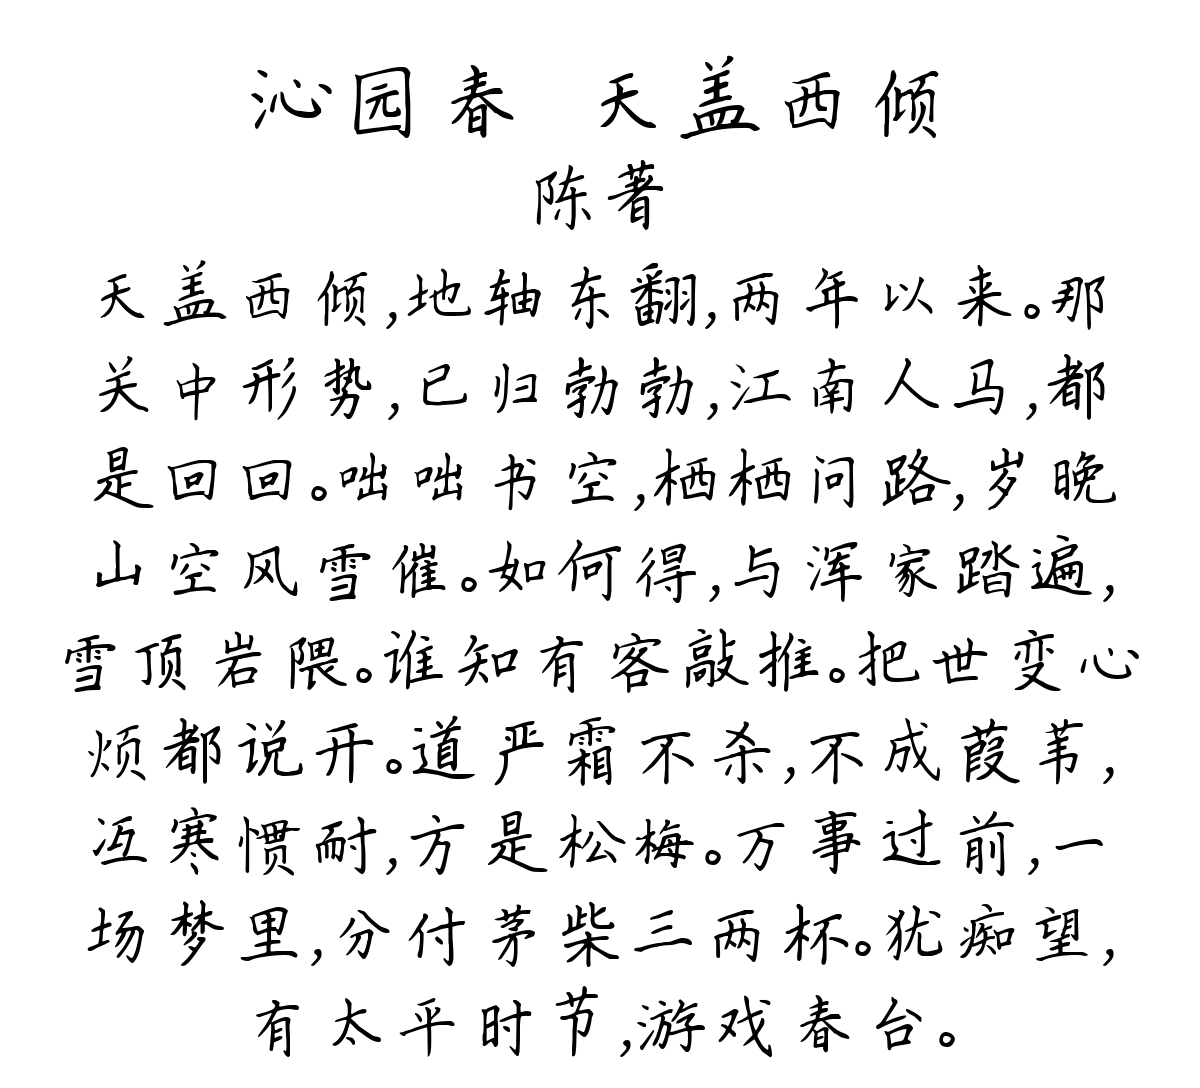 沁园春 天盖西倾
陈著
天盖西倾,地轴东翻,两年以来。那
关中形势,已归勃勃,江南人马,都
是回回。咄咄书空,栖栖问路,岁晚
山空风雪催。如何得,与浑家踏遍,
雪顶岩隈。谁知有客敲推。把世变心
烦都说开。道严霜不杀,不成葭苇,
冱寒惯耐,方是松梅。万事过前,一
场梦里,分付茅柴三两杯。犹痴望,
有太平时节,游戏春台。